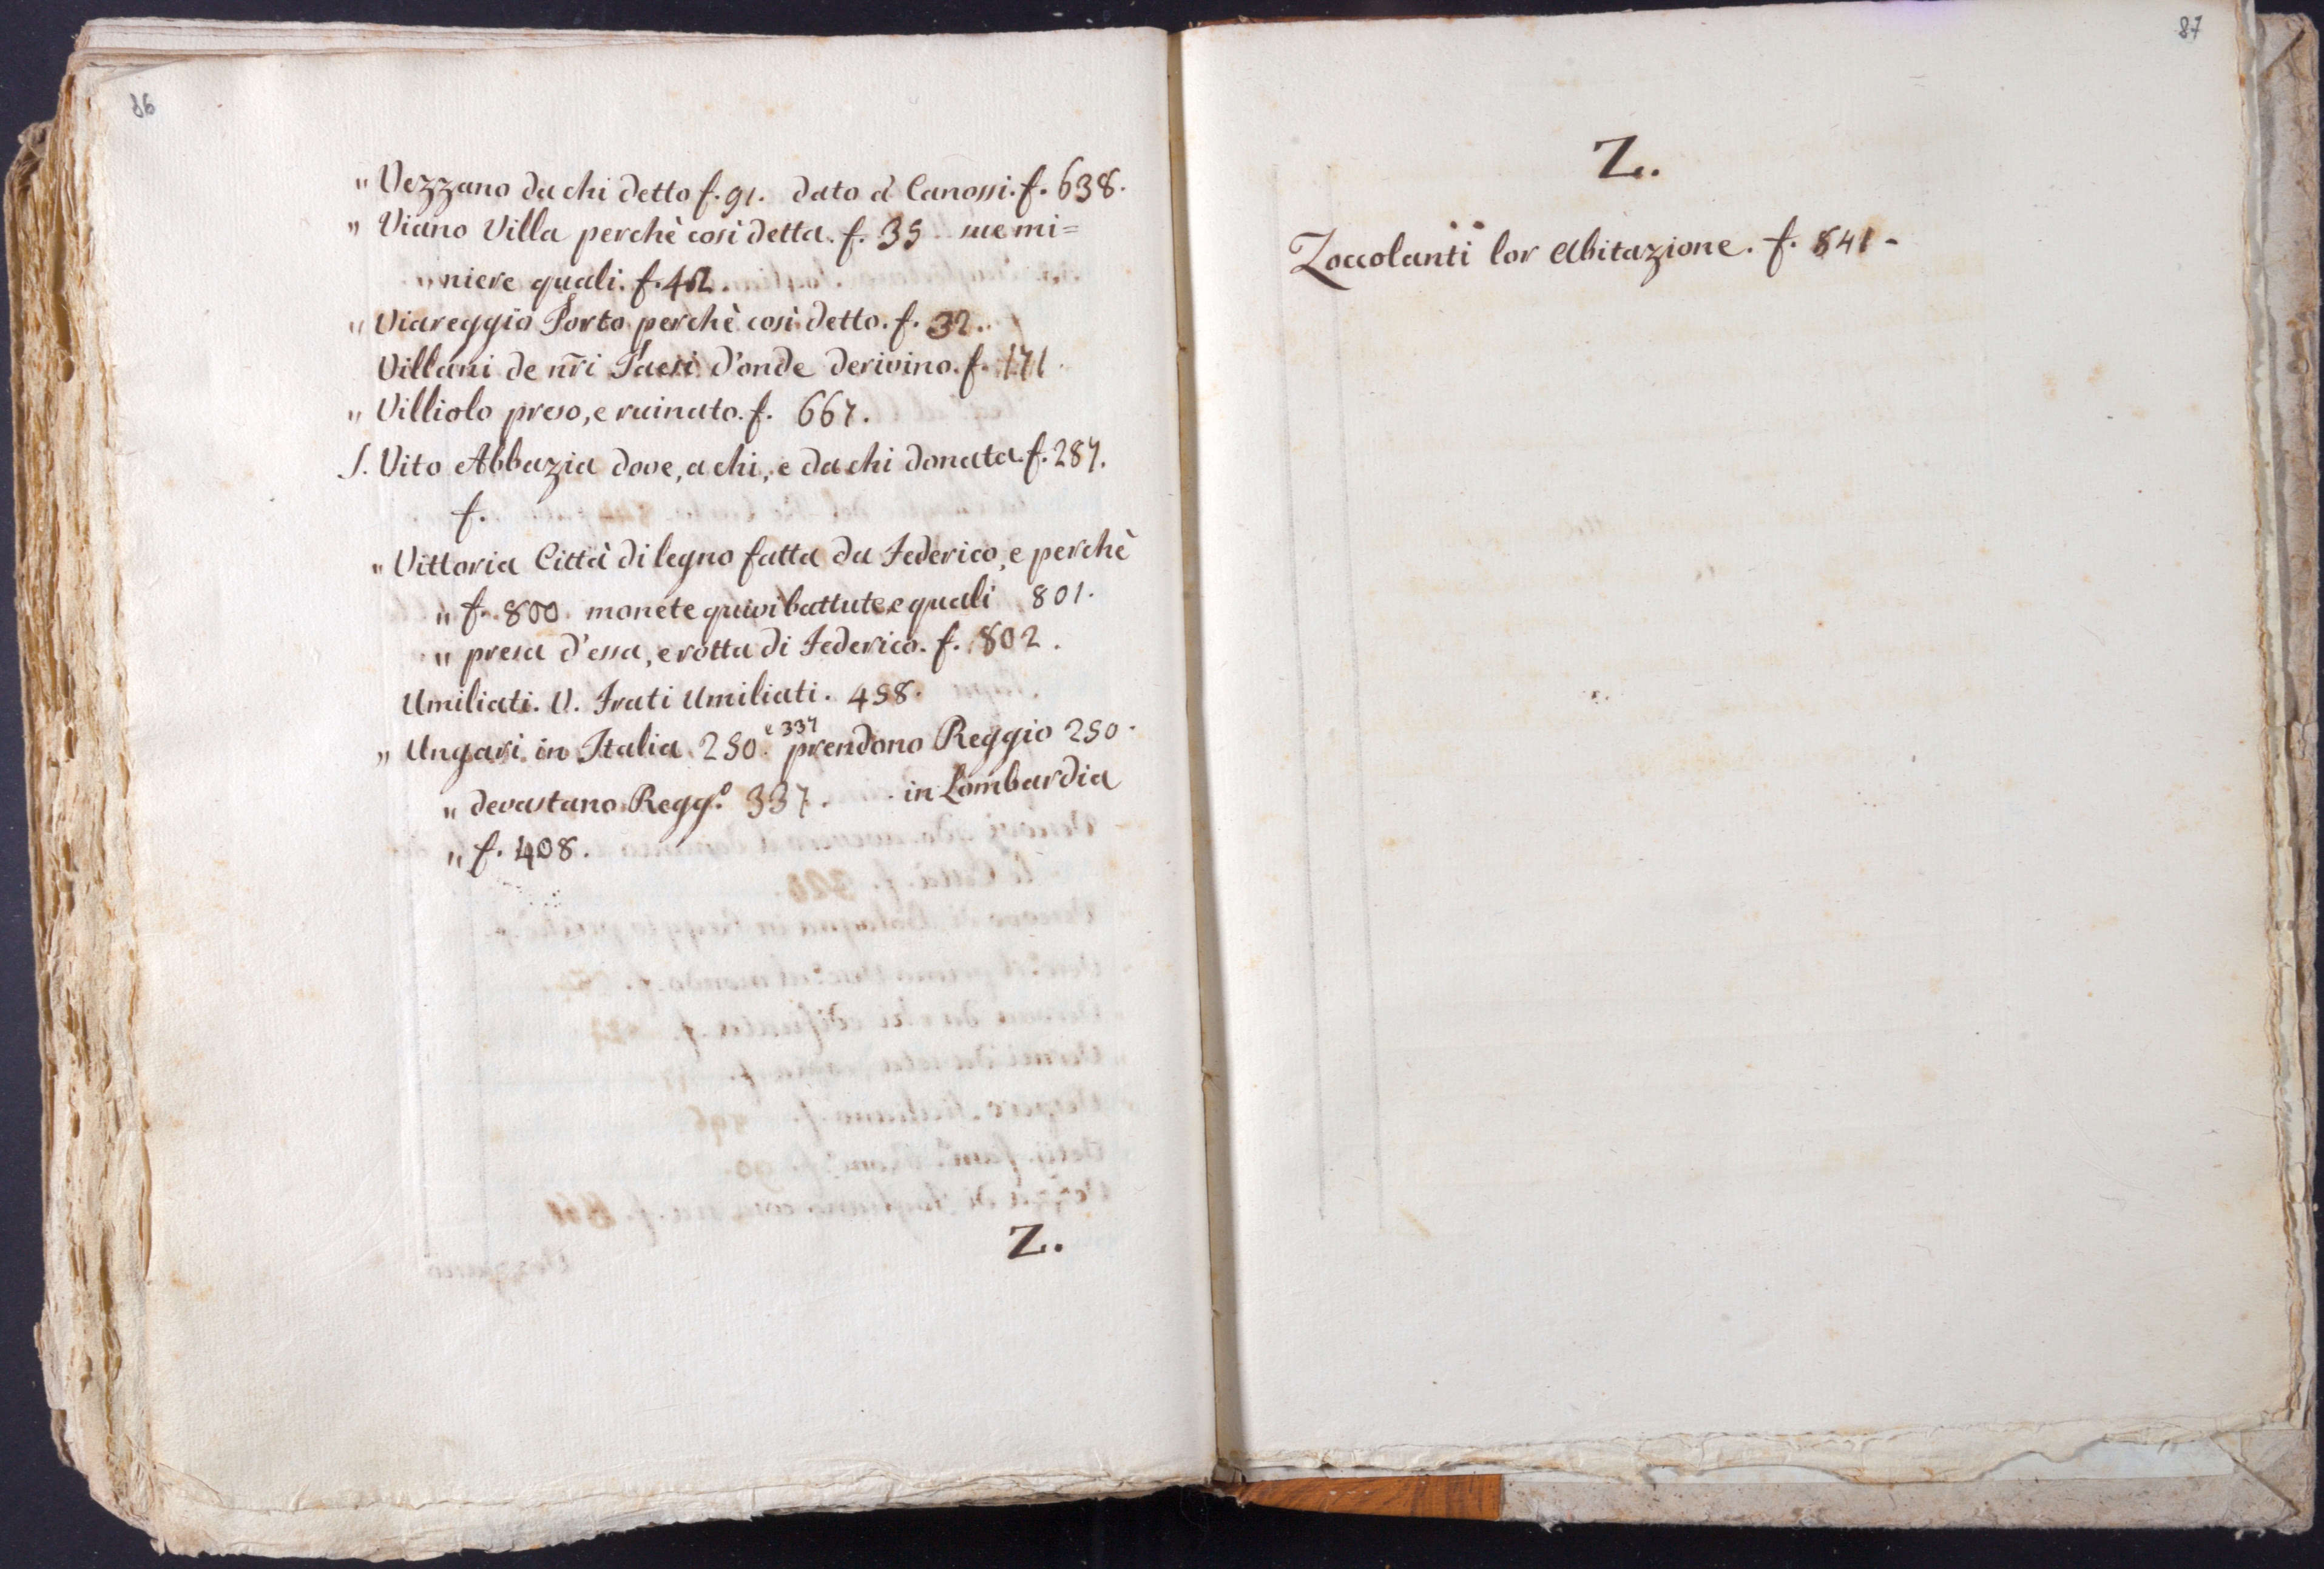 86
" Vezzano da chi detto f. 91. dato à Canossi. f. 638.
" Viano Villa perchè così detta. f. 35 sue mi=
niere quali. f. 42.
" Viareggio Porto perchè così detto. f. 32.
Villani de nr̃i Paesi d'onde derivino. f. 171.
" Villiolo preso, e ruinato. f. 667.
S. Vito Abbazia dove, a chi, e da chi donata f. 287.
f.
" Vittoria Città di legno fatta da Federico, e perchè
" f. 800. monete quivi battute e quali 801.
" presa d'essa, e rotta di Federico. f. 802.
Umiliati. V. Frati Umiliati. 458.
" Ungari in Italia 250. e 337 prendono Reggio 250.
" devastano Regg.º 337. in Lombardia
" f. 408.
Z.
87
Z.
Zoccolanti lor Abitazione. f. 841.